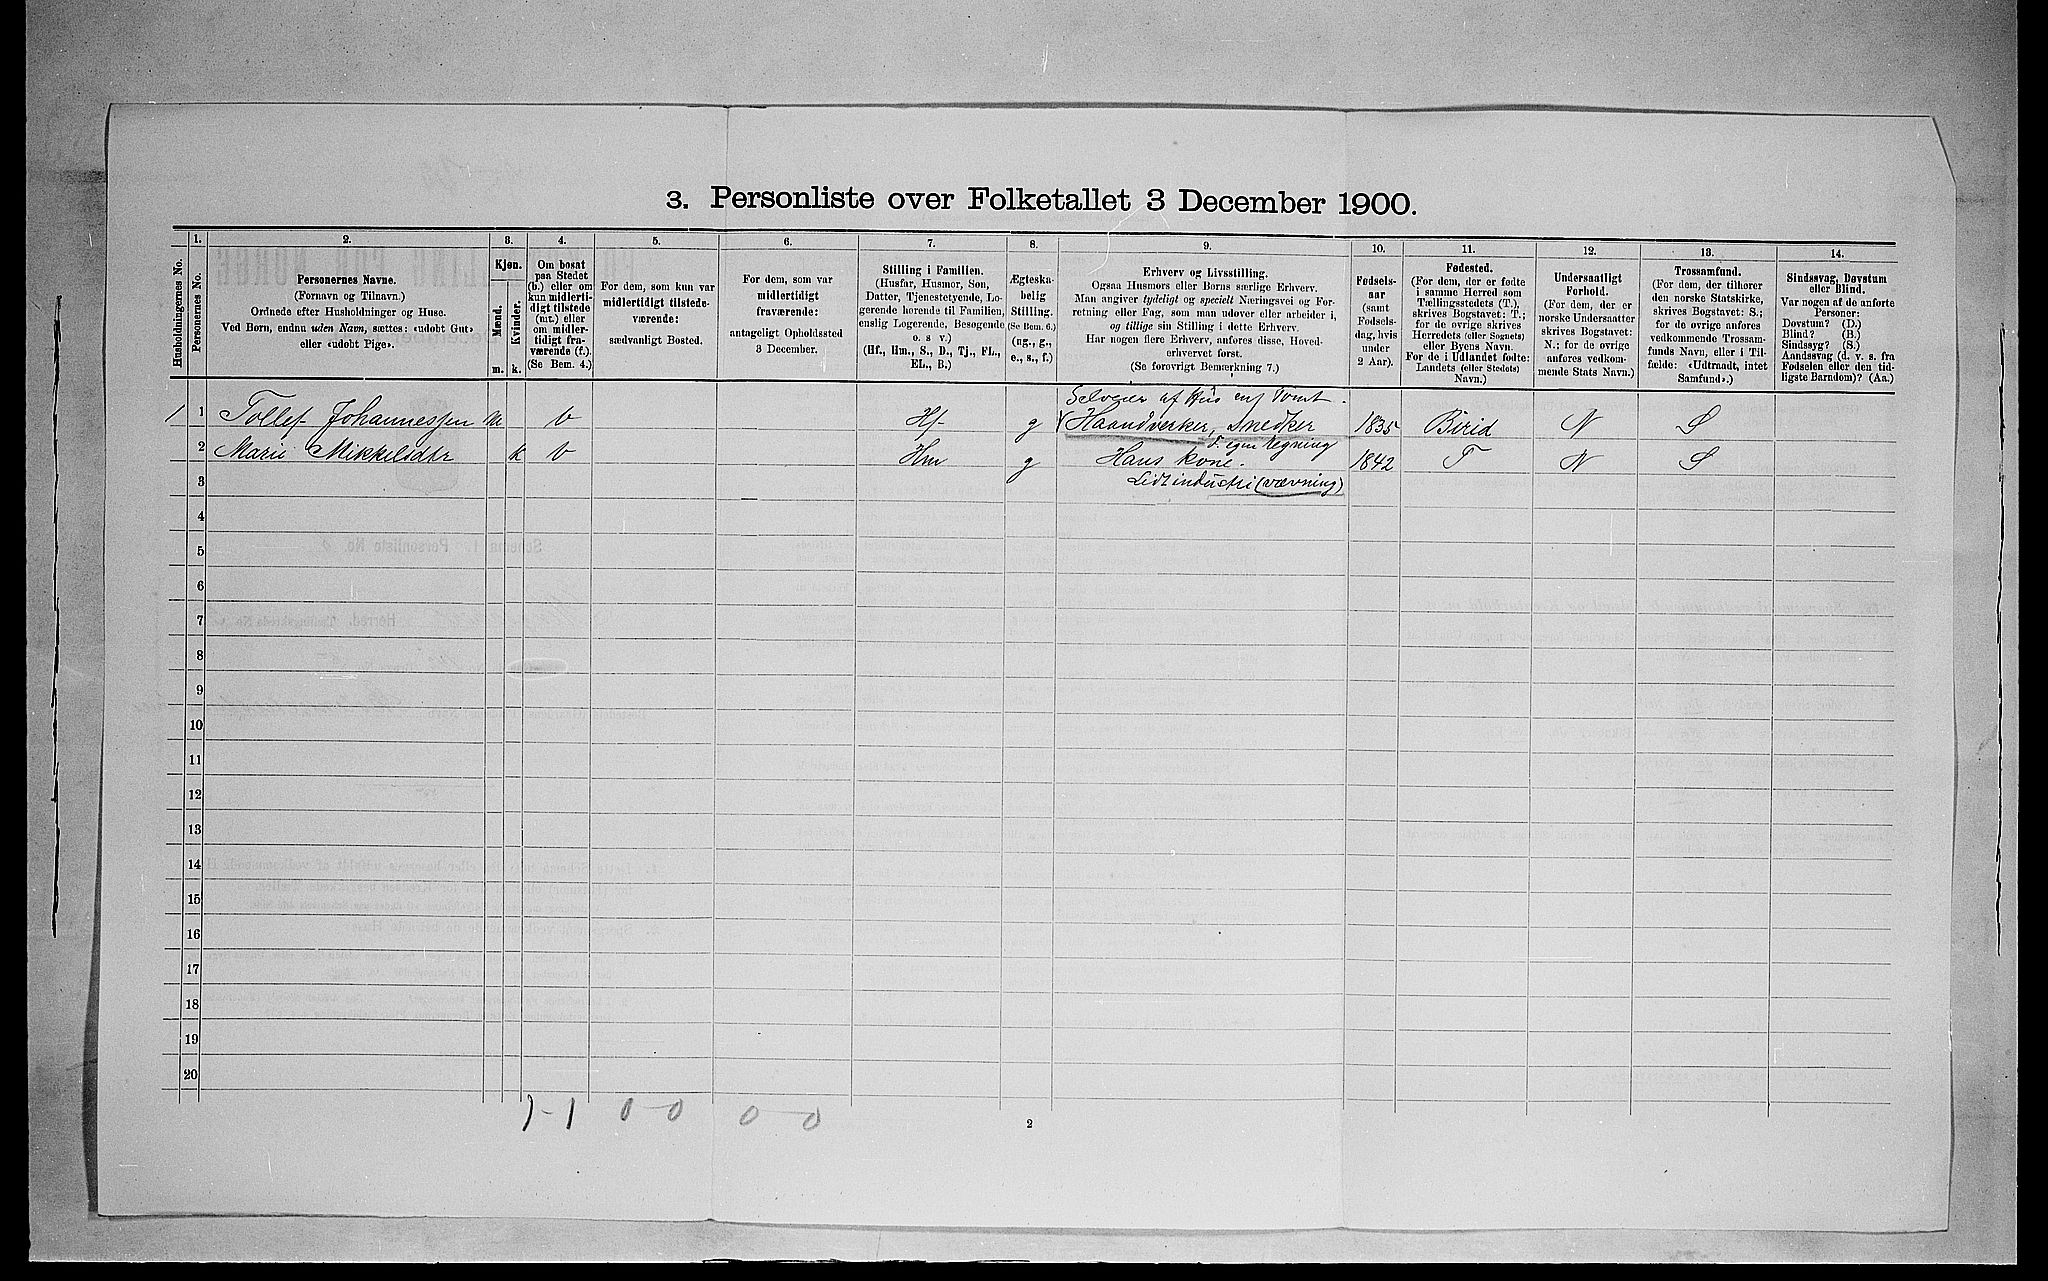 3. Personliste over Folketallet 3 December 1900.
Husholdningernes No.
1.
Personernes No.
2.
Personernes Navne.
(Fornavn og Tilnavn.)
Ordnede efter Husholdninger og Huse.
Ved Børn, endnu uden Navn, sættes: «udøbt Gut»
eller «udøbt Pige».
3.
Kjøn.
Mænd.
Kvinder.
m. k.
4.
Om bosat
paa Stedet
(b.) eller om
kun midlerti-
digt tilstede
(mt.) eller
om midler-
tidigt fra-
værende (f.).
(Se Bem. 4.)
5.
For dem, som kun var
midlertidigt tilstede-
værende:
sædvanligt Bosted.
6.
For dem, som var
midlertidigt
fraværende:
antageligt Opholdssted
3 December.
7.
Stilling i Familien.
(Husfar, Husmor, Søn,
Datter, Tjenestetyende, Lo-
gerende hørende til Familien,
enslig Logerende, Besøgende
o. s v.)
(Hf., Hm., S., D., Tj., FL.,
EL., B.)
8.
Ægteska-
belig
Stilling.
(Se Bem. 6.)
(ug., g.,
e., s., f.)
9.
Erhverv og Livsstilling.
Ogsaa Husmors eller Børns særlige Erhverv.
Man angiver tydeligt og specielt Næringsvei og For-
retning eller Fag, som man udøver eller arbeider i,
og tillige sin Stilling i dette Erhverv.
Har nogen flere Erhverv, anføres disse, Hoved-
erhvervet først.
(Se forøvrigt Bemærkning 7.)
10.
Fødsels-
aar
(samt
Fødsels-
dag, hvis
under
2 Aar).
11.
Fødested.
(For dem, der er fødte
i samme Herred som
Tællingsstedets (T.),
skrives Bogstavet: T.;
for de øvrige skrives
Herredets (eller Sognets)
eller Byens Navn.
For de i Udlandet fødte:
Landets (eller Stedets)
Navn.)
12.
Undersaatligt
Forhold.
(For dem, der er
norske Undersaatter
skrives Bogstavet:
N.; for de øvrige
anføres vedkom-
mende Stats Navn.)
13.
Trossamfund.
(For dem, der tilhører
den norske Statskirke,
skrives Bogstavet: S.;
for de øvrige anføres
vedkommende Trossam-
funds Navn, eller i Til-
fælde: «Udtraadt, intet
Samfund».)
14.
Sindssvag, Døvstum
eller Blind.
Var nogen af de anførte
Personer:
Døvstum? (D.)
Blind? (B.)
Sindssyg? (S.)
Aandssvag (d. v. s. fra
Fødselen eller den tid-
ligste Barndom)? (Aa.)
Selveier af Hus og Tomt.
1 1 Tollef Johannessen m b Hf g Haandverker, Snedker 1835 Birid N S
f. egen regning
2 Marie Mikkelsdtr k b Hm g Hans kone. 1842 T N S
3 Lidt industri (vævning)
4
5
6
7
8
9
10
11
12
13
14
15
16
17
18
19
20
1-1 0-0 0-0
2